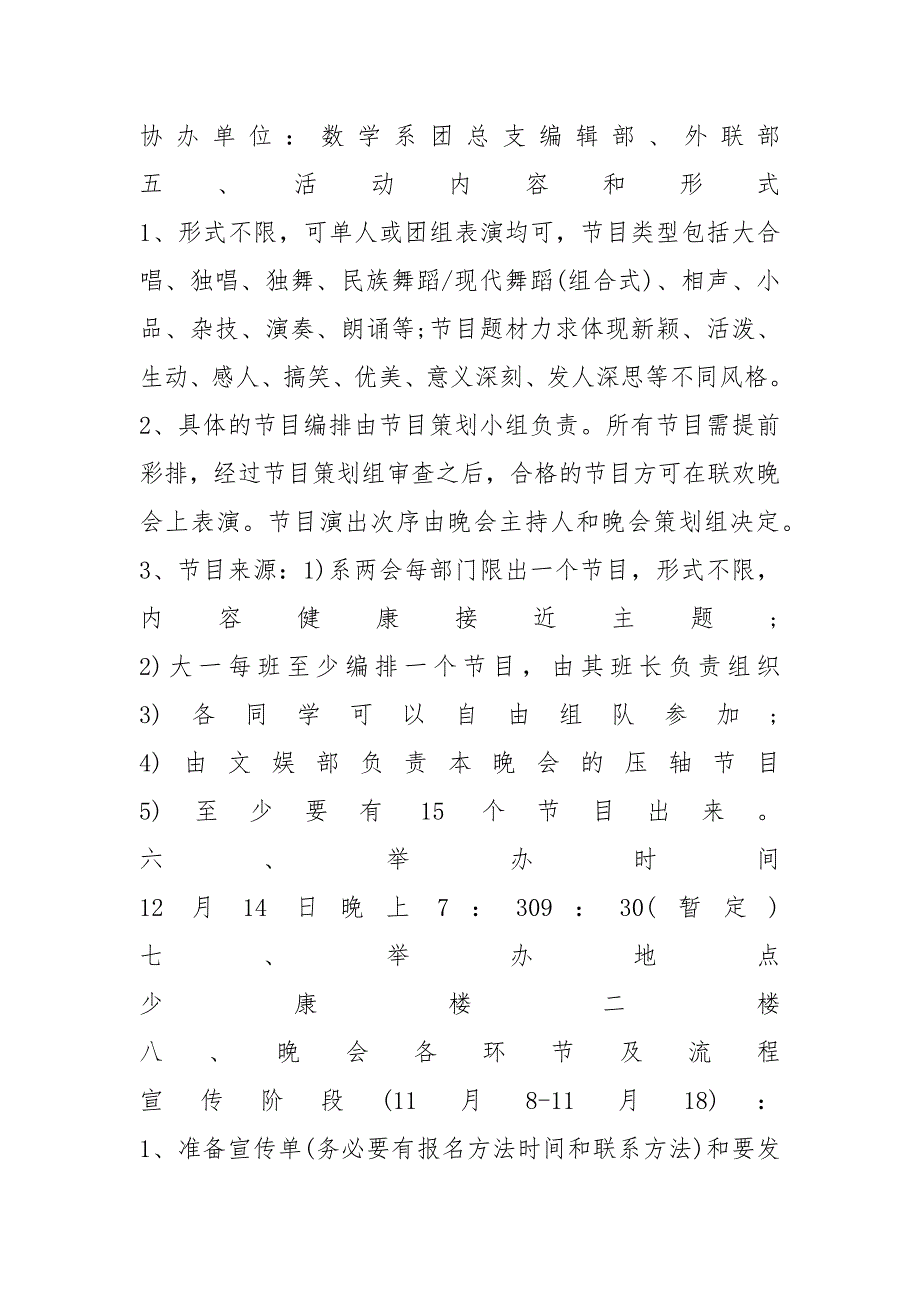 协办单位：数学系团总支编辑部、外联部
五、活动内容和形式
1、形式不限，可单人或团组表演均可，节目类型包括大合
唱、独唱、独舞、民族舞蹈/现代舞蹈(组合式)、相声、小
品、杂技、演奏、朗诵等;节目题材力求体现新颖、活泼、
生动、感人、搞笑、优美、意义深刻、发人深思等不同风格。
2、具体的节目编排由节目策划小组负责。所有节目需提前
彩排，经过节目策划组审查之后，合格的节目方可在联欢晚
会上表演。节目演出次序由晚会主持人和晚会策划组决定。
3、节目来源：1)系两会每部门限出一个节目，形式不限，
内容健康接近主题;
2)大一每班至少编排一个节目，由其班长负责组织
3)各同学可以自由组队参加;
4)由文娱部负责本晚会的压轴节目
5)至少要有15个节目出来。
六、举办时间
12月14日晚上7：309：30(暂定)
七、举办地点
少康楼二楼
八、晚会各环节及流程
宣传阶段(11月8-11月18)：
1、准备宣传单(务必要有报名方法时间和联系方法)和要发